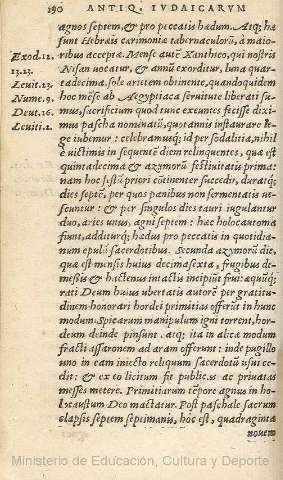 190 ANTIQ. IVDAICARVM
agnos septem, & pro peccatis hædum. Atq; hæ
sunt Hebræis cærimoniæ tabernaculorū, à maio-
Exod.12. ribus acceptæ. Mense autē Xanthico, qui nostris
13.23. Nisan vocatur, & annū exorditur, luna quar-
Leuit.23. tadecima, sole arietem obtinente, quandoquidem
Nume.9. hoc mēse ab Aegyptiaca seruitute liberati su-
Deut.16. mus, sacrificium quod tunc exeuntes fecisse dixi-
Leuiti.2. mus pascha nominatū, quotannis instaurare le-
ge iubemur: celebramusq; id per sodalitia, nihil
è victimis in sequentē diem relinquentes, quæ est
quintadecima & azymorū festiuitatis prima:
nam hoc festū priori cōtinenter succedit, duratq;
dies septē, per quos panibus non fermentatis ve-
scuntur: & per singulos dies tauri iugulantur
duo, aries vnus, agni septem: hæc holocautoma
fiunt, additurq; hædus pro peccatis in quotidia-
num epulū sacerdotibus. Secunda azymorū die,
quæ est mensis huius decimasexta, frugibus de-
messis & hactenus intactis incipiūt frui: æquūq;
rati Deum huius vbertatis autorē per gratitu-
dinem honorari hordei primitias offerūt in hunc
modum. Spicarum manipulum igni torrent, hor-
deum deinde pinsunt. atq; ita in alica modum
fracti assaronem ad aram offerunt: inde pugillo
vno in eam iniecto reliquum sacerdotū vsui ce-
dit: & ex eo licitum fit public.s ac priuatas
messes metere. Primitiarum tēpore agnus in ho-
locaustum Deo mactatur. Post paschale sacrum
elapsis septem septimanis, hoc est, quadraginta
nouem
Ministerio de Educación, Cultura y Deporte